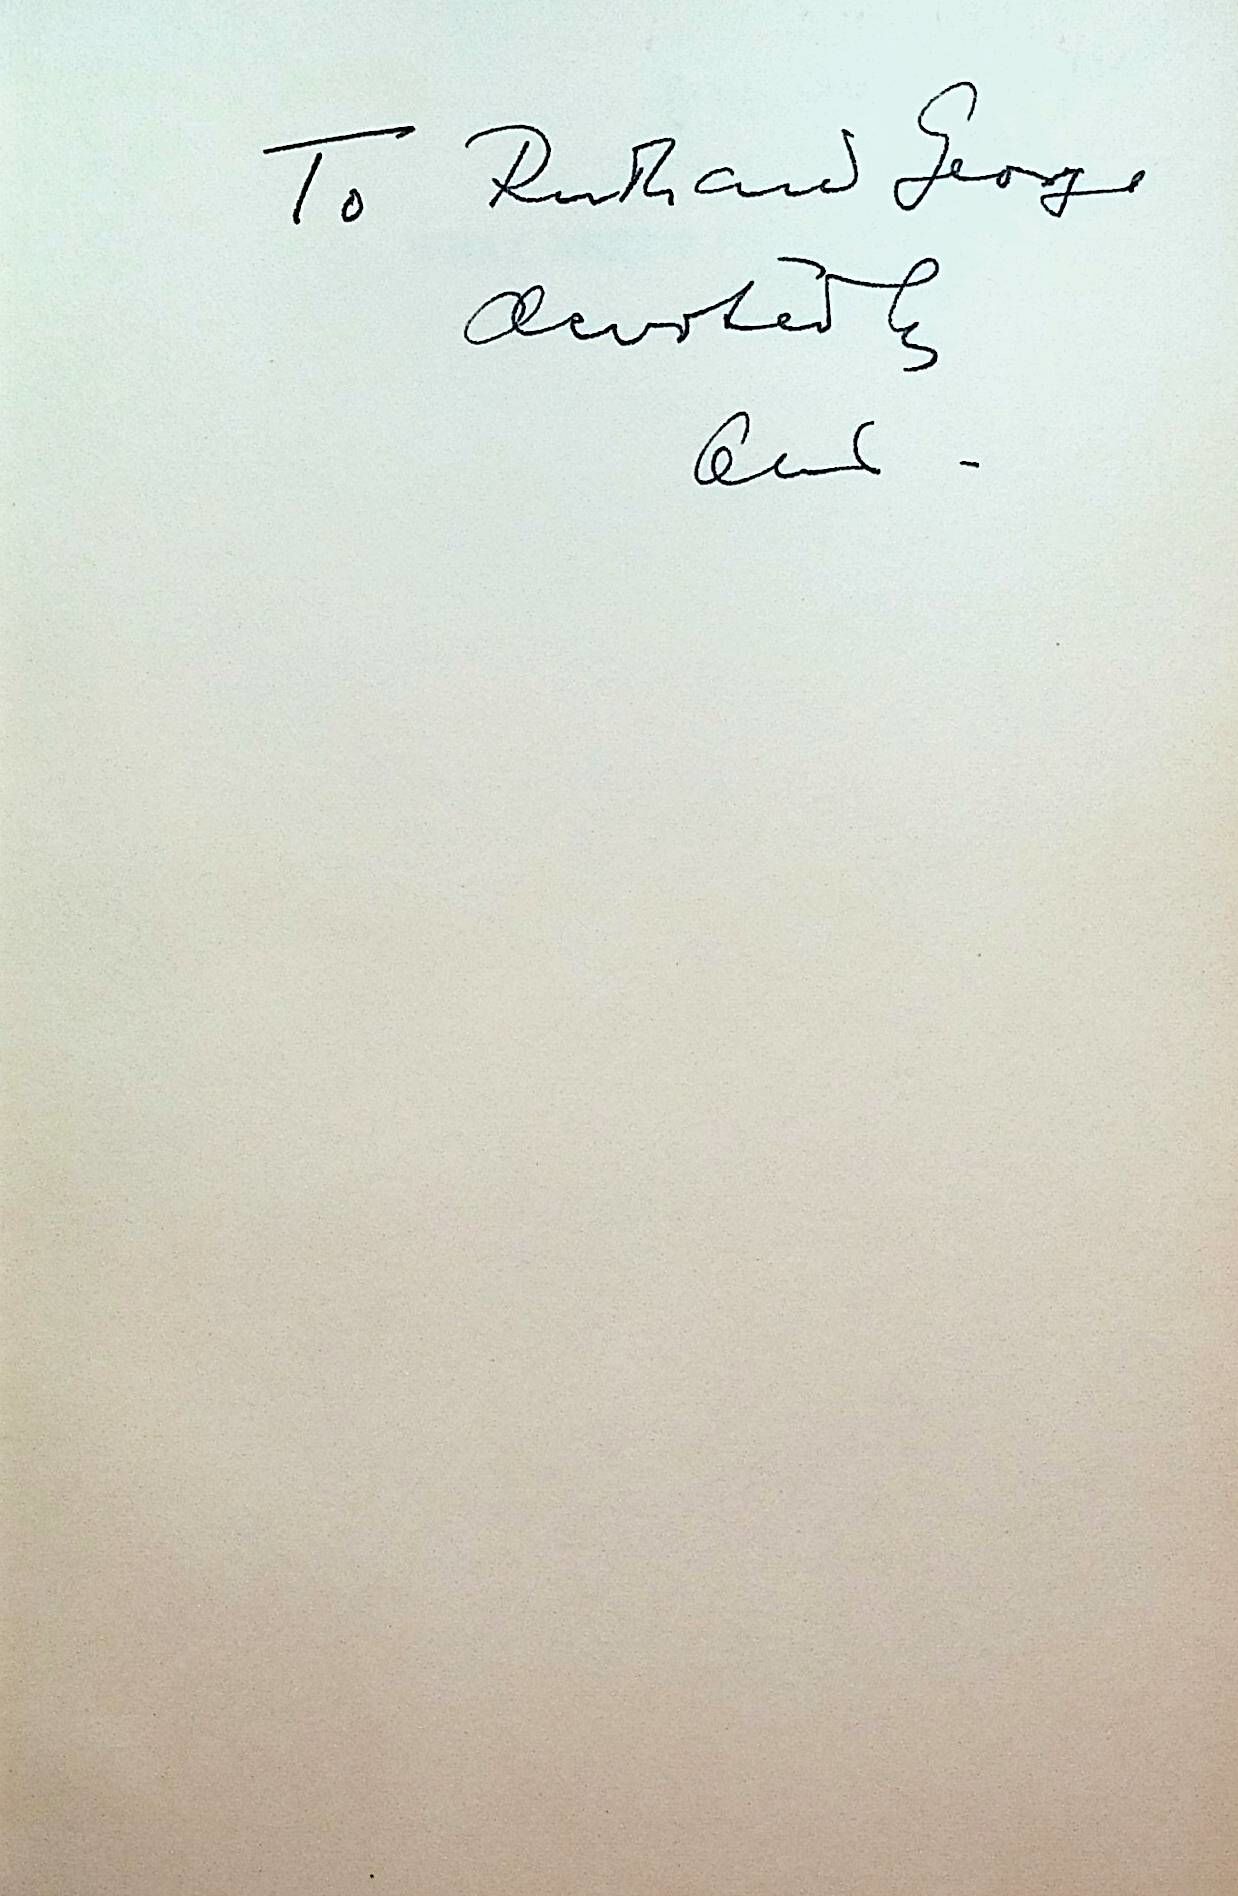 To Ruth and George
devotedly